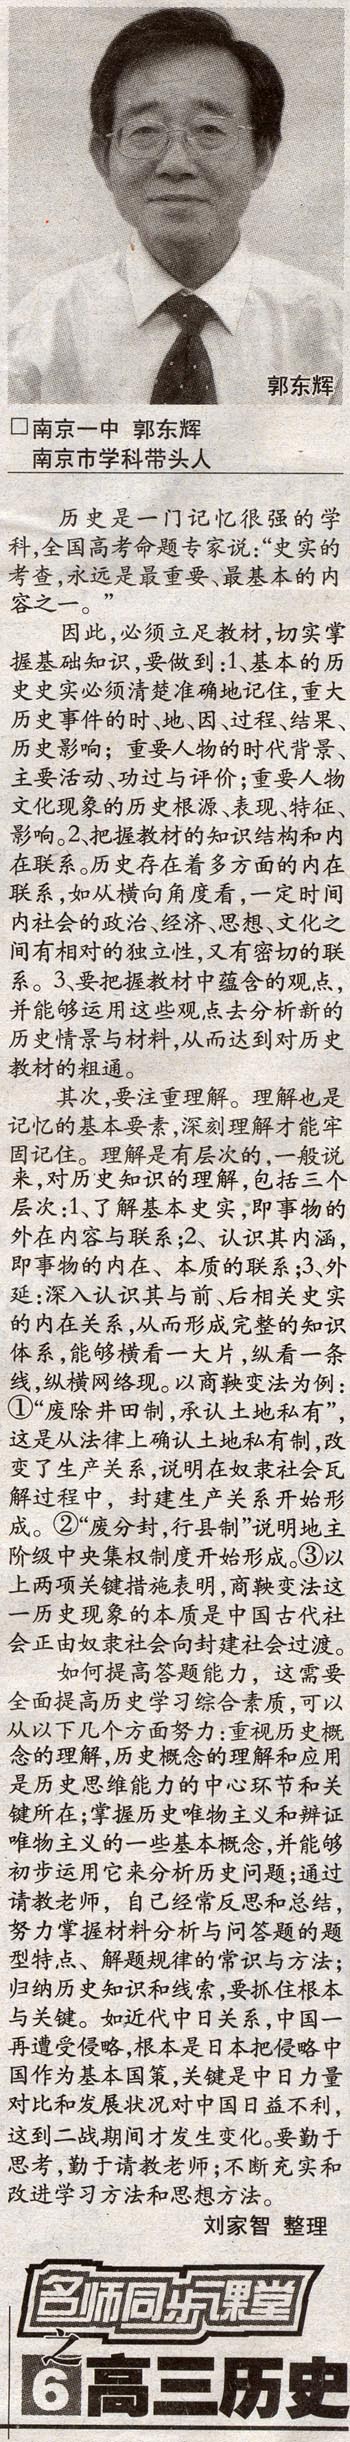 郭东辉
□南京一中 郭东辉
南京市学科带头人
历史是一门记忆很强的学
科,全国高考命题专家说:“史实的
考查,永远是最重要、最基本的内
容之一。”
因此,必须立足教材,切实掌
握基础知识,要做到:1、基本的历
史史实必须清楚准确地记住,重大
历史事件的时、地、因、过程、结果、
历史影响;重要人物的时代背景、
主要活动、功过与评价;重要人物
文化现象的历史根源、表现、特征、
影响。2、把握教材的知识结构和内
在联系。历史存在着多方面的内在
联系,如从横向角度看,一定时间
内社会的政治、经济、思想、文化之
间有相对的独立性,又有密切的联
系。3、要把握教材中蕴含的观点,
并能够运用这些观点去分析新的
历史情景与材料,从而达到对历史
教材的粗通。
其次,要注重理解。理解也是
记忆的基本要素,深刻理解才能牢
固记住。理解是有层次的,一般说
来,对历史知识的理解,包括三个
层次:1、了解基本史实,即事物的
外在内容与联系;2、认识其内涵,
即事物的内在、本质的联系;3、外
延:深入认识其与前、后相关史实
的内在关系,从而形成完整的知识
体系,能够横看一大片,纵看一条
线,纵横网络现。以商鞅变法为例:
①“废除井田制,承认土地私有”,
这是从法律上确认土地私有制,改
变了生产关系,说明在奴隶社会瓦
解过程中,封建生产关系开始形
成。②“废分封,行县制”说明地主
阶级中央集权制度开始形成。③以
上两项关键措施表明,商鞅变法这
一历史现象的本质是中国古代社
会正由奴隶社会向封建社会过渡。
如何提高答题能力,这需要
全面提高历史学习综合素质,可以
从以下几个方面努力:重视历史概
念的理解,历史概念的理解和应用
是历史思维能力的中心环节和关
键所在;掌握历史唯物主义和辨证
唯物主义的一些基本概念,并能够
初步运用它来分析历史问题;通过
请教老师,自己经常反思和总结,
努力掌握材料分析与问答题的题
型特点、解题规律的常识与方法;
归纳历史知识和线索,要抓住根本
与关键。如近代中日关系,中国一
再遭受侵略,根本是日本把侵略中
国作为基本国策,关键是中日力量
对比和发展状况对中国日益不利,
这到二战期间才发生变化。要勤于
思考,勤于请教老师;不断充实和
改进学习方法和思想方法。
刘家智 整理
名师同步课堂
之
6 高三历史